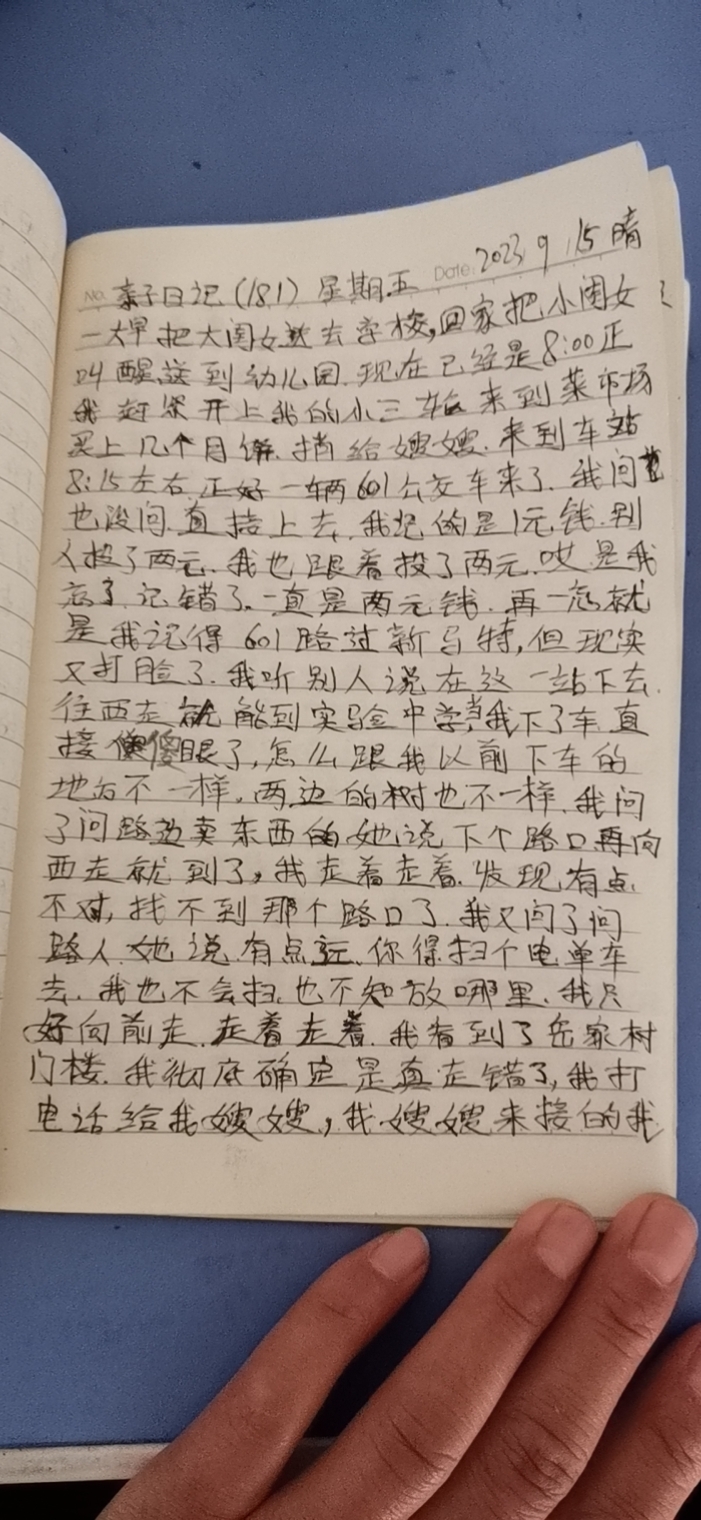 No. 亲子日记(181) 星期五 Date: 2023 9 15 晴
一大早把大闺女送去学校,回家把小闺女
叫醒送到幼儿园.现在已经是8:00正
我赶紧开上我的小三轮来到菜市场
买上几个月饼.捎给嫂嫂.来到车站
8:15左右.正好一辆601公交车来了.我问
也没问.直接上去.我记的是1元钱.别
人投了两元.我也跟着投了两元.哎.是我
忘了.记错了.一直是两元钱.再一忘就
是我记得601路过新马特,但现实
又打脸了.我听别人说在这一站下去.
往西走就能到实验中学.当我下了车.直
接傻眼了,怎么跟我以前下车的
地方不一样.两边的树也不一样.我问
了问路边卖东西的她说下个路口再向
西走就到了,我走着走着.发现有点
不对,找不到那个路口了.我又问了问
路人.她说有点远.你得扫个电单车
去.我也不会扫.也不知放哪里.我只
好向前走.走着走着.我看到了岳家村
门楼.我彻底确定是真走错了,我打
电话给我嫂嫂,我嫂嫂来接的我